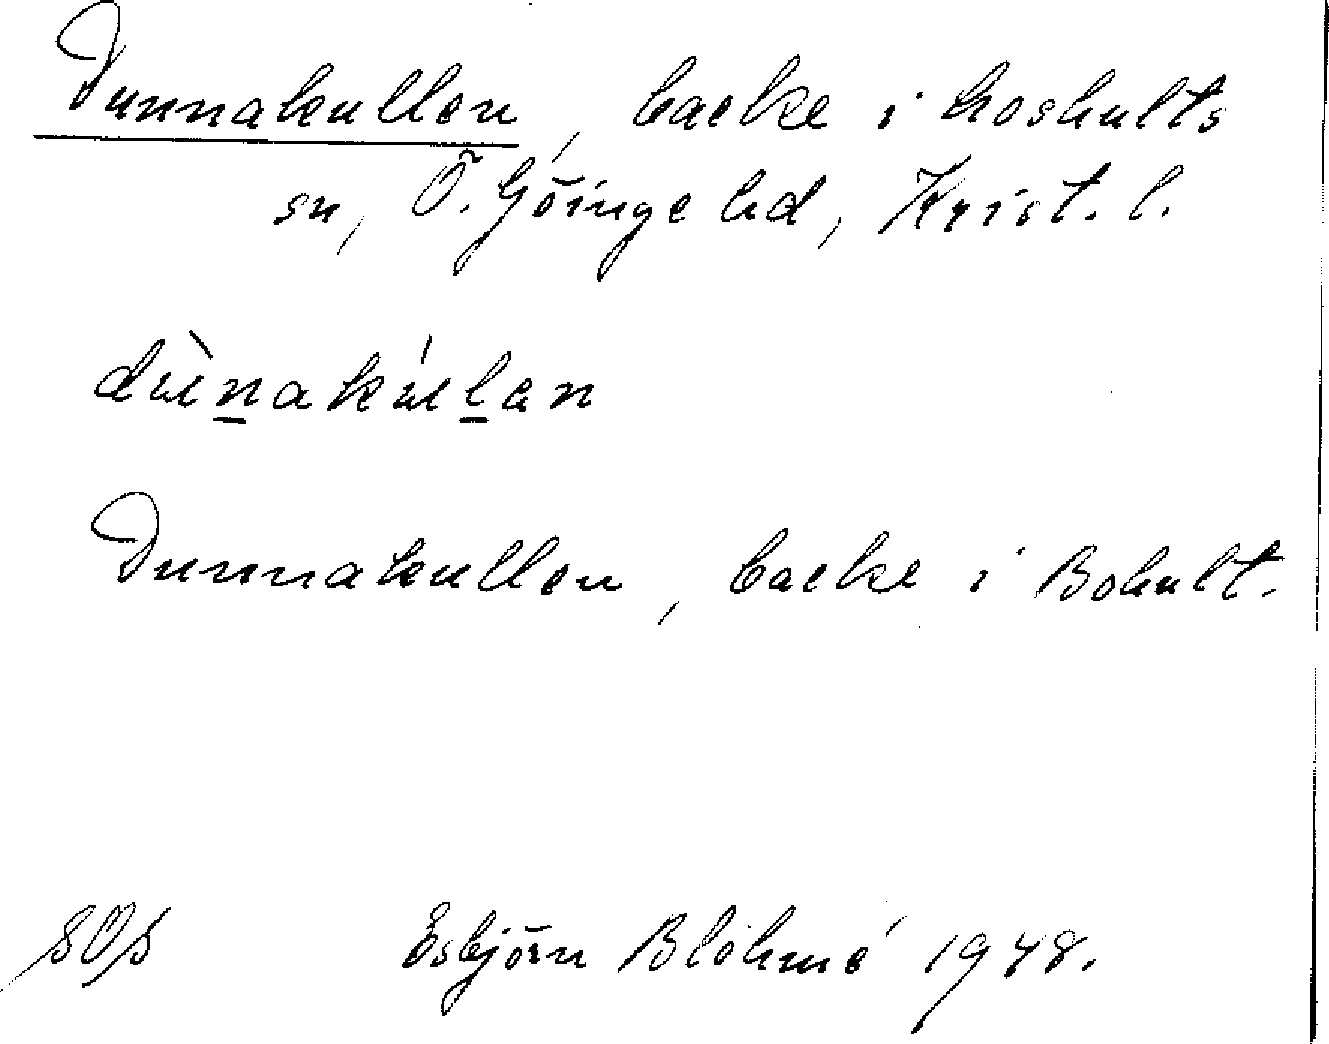 Dunnakullen, backe i Loshults
sn, Ö. Göinge hd, Krist. l.
dùnakúlen
Dunnakullen, backe i Bohult.
SOS Esbjörn Blöhmé 1948.